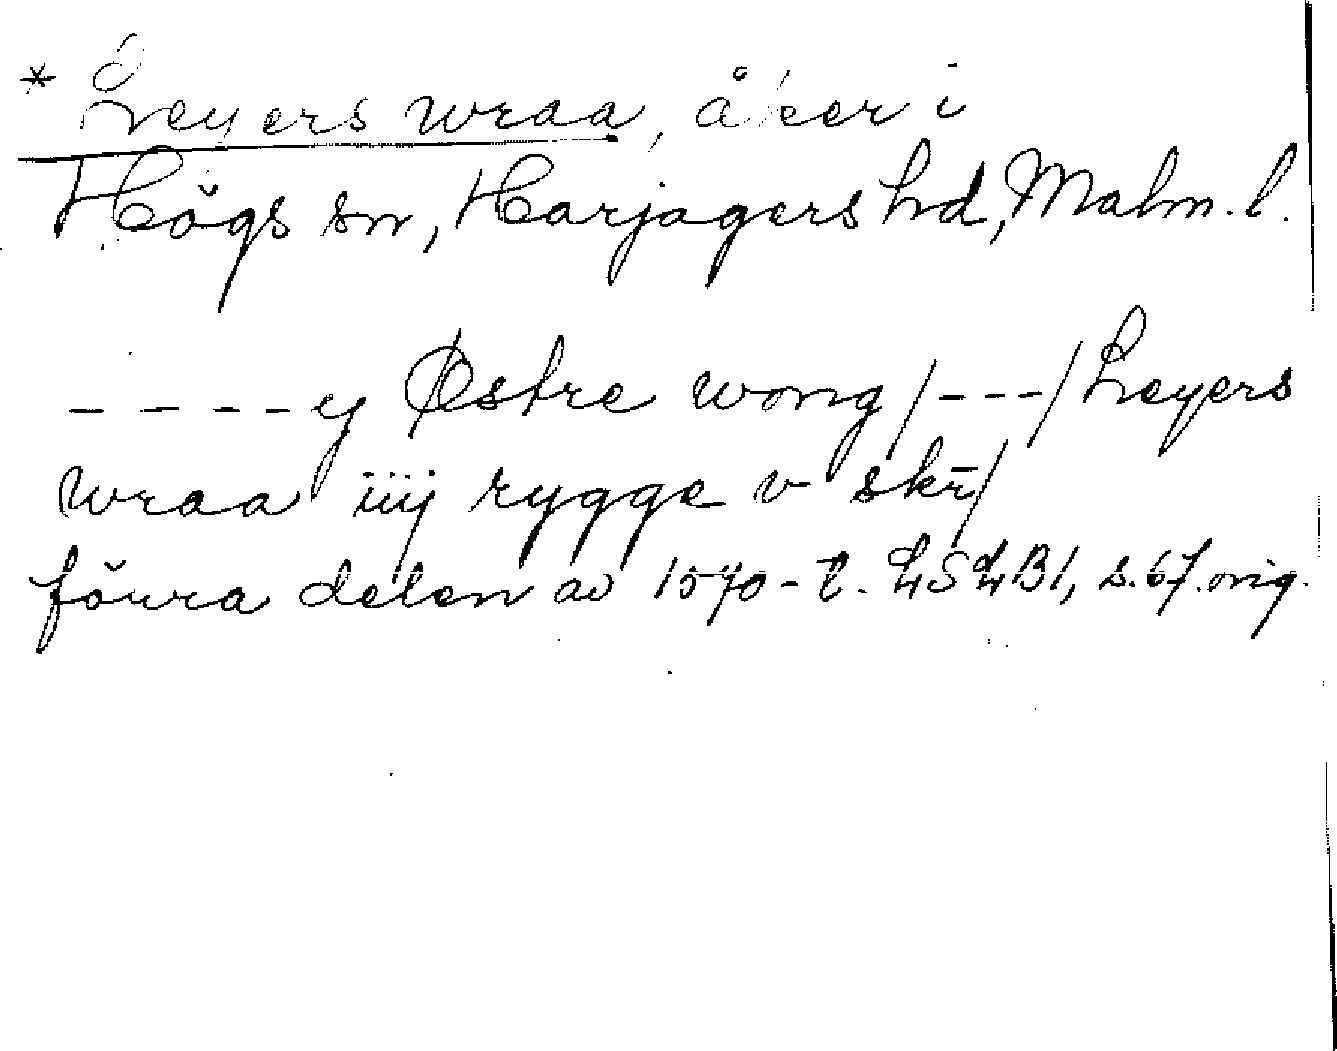 * Leyers wraa, åker i
Högs sn, Harjagers hd, Malm. l.
- - - - ij Østre wong /---/ Leyers
wraa iiij rygge v skr̄/
förra delen av 1570-t. LSLB1, s. 67. orig.